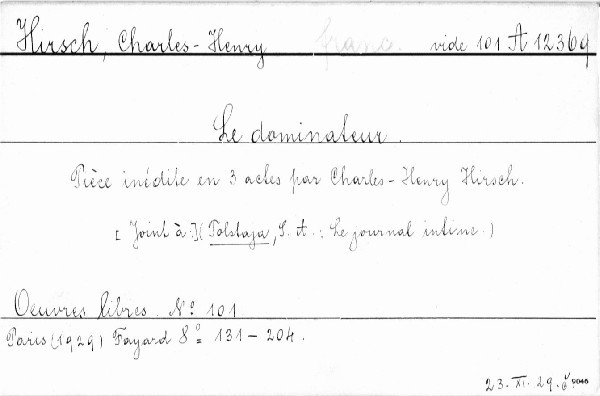 Hirsch, Charles-Henry franc. vide 101 A 12369
Le dominateur.
Pièce inédite en 3 actes par Charles-Henry Hirsch.
[Joint à:] (Tolstaja, S. A.: Le journal intime.)
Oeuvres libres. No 101
Paris (1929) Fayard 8º 131-204.
23. XI. 29. č 9040